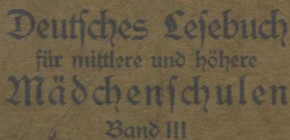 Deutſches Leſebuch
für mittlere und höhere
Mädchenſchulen
Band III